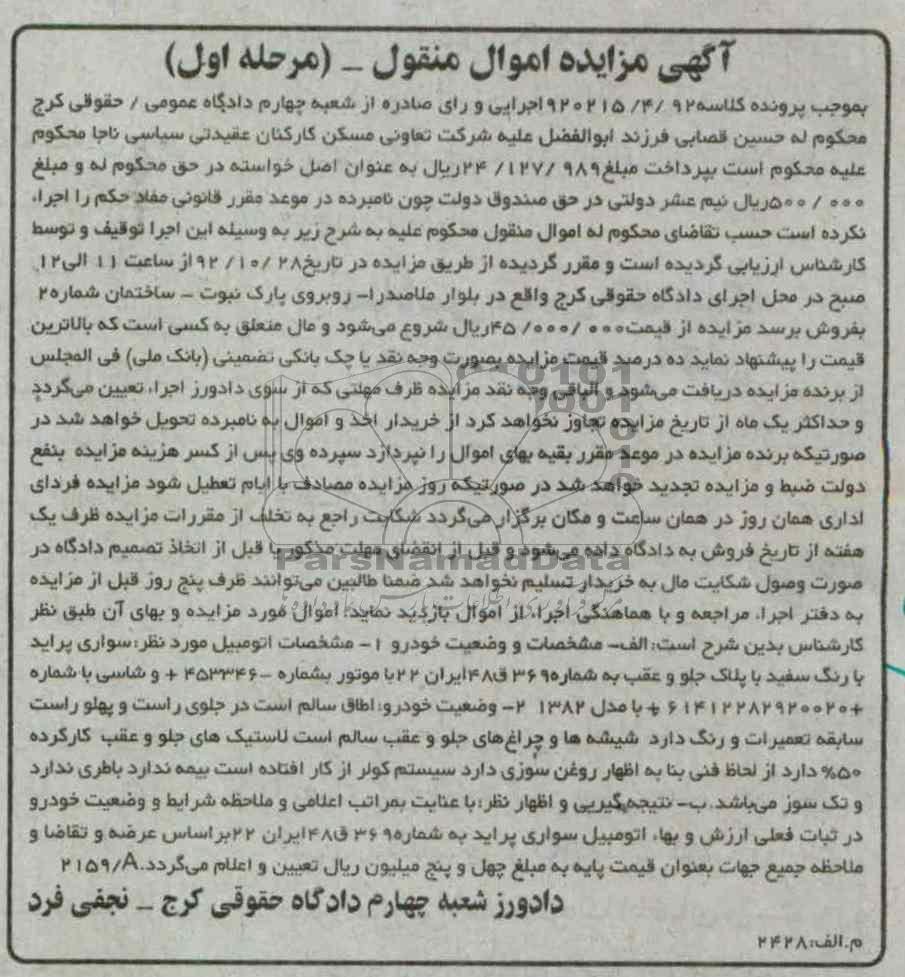 آگهی مزایده اموال منقول _ (مرحله اول)
بموجب پرونده کلاسه۹۲ /۴/ ۹۲۰۲۱۵اجرایی و رای صادره از شعبه چهارم دادگاه عمومی / حقوقی کرج
محکوم له حسین قصابی فرزند ابوالفضل علیه شرکت تعاونی مسکن کارکنان عقیدتی سیاسی ناجا محکوم
علیه محکوم است بپرداخت مبلغ۹۸۹ /۱۲۷/ ۲۴ریال به عنوان اصل خواسته در حق محکوم له و مبلغ
۰۰۰ / ۵۰۰ریال نیم عشر دولتی در حق صندوق دولت چون نامبرده در موعد مقرر قانونی مفاد حکم را اجراء
نکرده است حسب تقاضای محکوم له اموال منقول محکوم علیه به شرح زیر به وسیله این اجرا توقیف و توسط
کارشناس ارزیابی گردیده است و مقرر گردیده از طریق مزایده در تاریخ۲۸ /۱۰/ ۹۲از ساعت ۱۱ الی۱۲
صبح در محل اجرای دادگاه حقوقی کرج واقع در بلوار ملاصدرا- روبروی پارک نبوت - ساختمان شماره۲
بفروش برسد مزایده از قیمت۰۰۰ /۰۰۰/ ۴۵ریال شروع می‌شود و مال متعلق به کسی است که بالاترین
قیمت را پیشنهاد نماید ده درصد قیمت مزایده بصورت وجه نقد یا چک بانکی تضمینی (بانک ملی) فی المجلس
از برنده مزایده دریافت می‌شود و الباقی وجه نقد مزایده ظرف مهلتی که از سوی دادورز اجراء تعیین می‌گردد
و حداکثر یک ماه از تاریخ مزایده تجاوز نخواهد کرد از خریدار اخذ و اموال به نامبرده تحویل خواهد شد در
صورتیکه برنده مزایده در موعد مقرر بقیه بهای اموال را نپردازد سپرده وی پس از کسر هزینه مزایده بنفع
دولت ضبط و مزایده تجدید خواهد شد در صورتیکه روز مزایده مصادف با ایام تعطیل شود مزایده فردای
اداری همان روز در همان ساعت و مکان برگزار می‌گردد شکایت راجع به تخلف از مقررات مزایده ظرف یک
هفته از تاریخ فروش به دادگاه داده می‌شود و قبل از انقضای مهلت مذکور یا قبل از اتخاذ تصمیم دادگاه در
صورت وصول شکایت مال به خریدار تسلیم نخواهد شد ضمنا طالبین می‌توانند ظرف پنج روز قبل از مزایده
به دفتر اجراء مراجعه و با هماهنگی اجراء از اموال بازدید نماید. اموال مورد مزایده و بهای آن طبق نظر
کارشناس بدین شرح است: الف- مشخصات و وضعیت خودرو ۱- مشخصات اتومبیل مورد نظر: سواری پراید
با رنگ سفید با پلاک جلو و عقب به شماره۳۶۹ ق۴۸ایران ۲۲با موتور بشماره -۴۵۳۳۴۶ + و شاسی با شماره
+۶۱۴۱۲۲۸۲۹۲۰۰۲۰ + با مدل ۱۳۸۲ ۲- وضعیت خودرو: اطاق سالم است در جلوی راست و پهلو راست
سابقه تعمیرات و رنگ دارد شیشه ها و چراغ‌های جلو و عقب سالم است لاستیک های جلو و عقب کارکرده
۵۰% دارد از لحاظ فنی بنا به اظهار روغن سوزی دارد سیستم کولر از کار افتاده است بیمه ندارد باطری ندارد
و تک سوز می‌باشد. ب- نتیجه‌گیریی و اظهار نظر: با عنایت بمراتب اعلامی و ملاحظه شرایط و وضعیت خودرو
در ثبات فعلی ارزش و بهاء اتومبیل سواری پراید به شماره۳۶۹ ق۴۸ایران ۲۲براساس عرضه و تقاضا و
ملاحظه جمیع جهات بعنوان قیمت پایه به مبلغ چهل و پنج میلیون ریال تعیین و اعلام می‌گردد.۲۱۵۹/A
دادورز شعبه چهارم دادگاه حقوقی کرج _ نجفی فرد
م.الف:۲۴۲۸
ParsNamadData